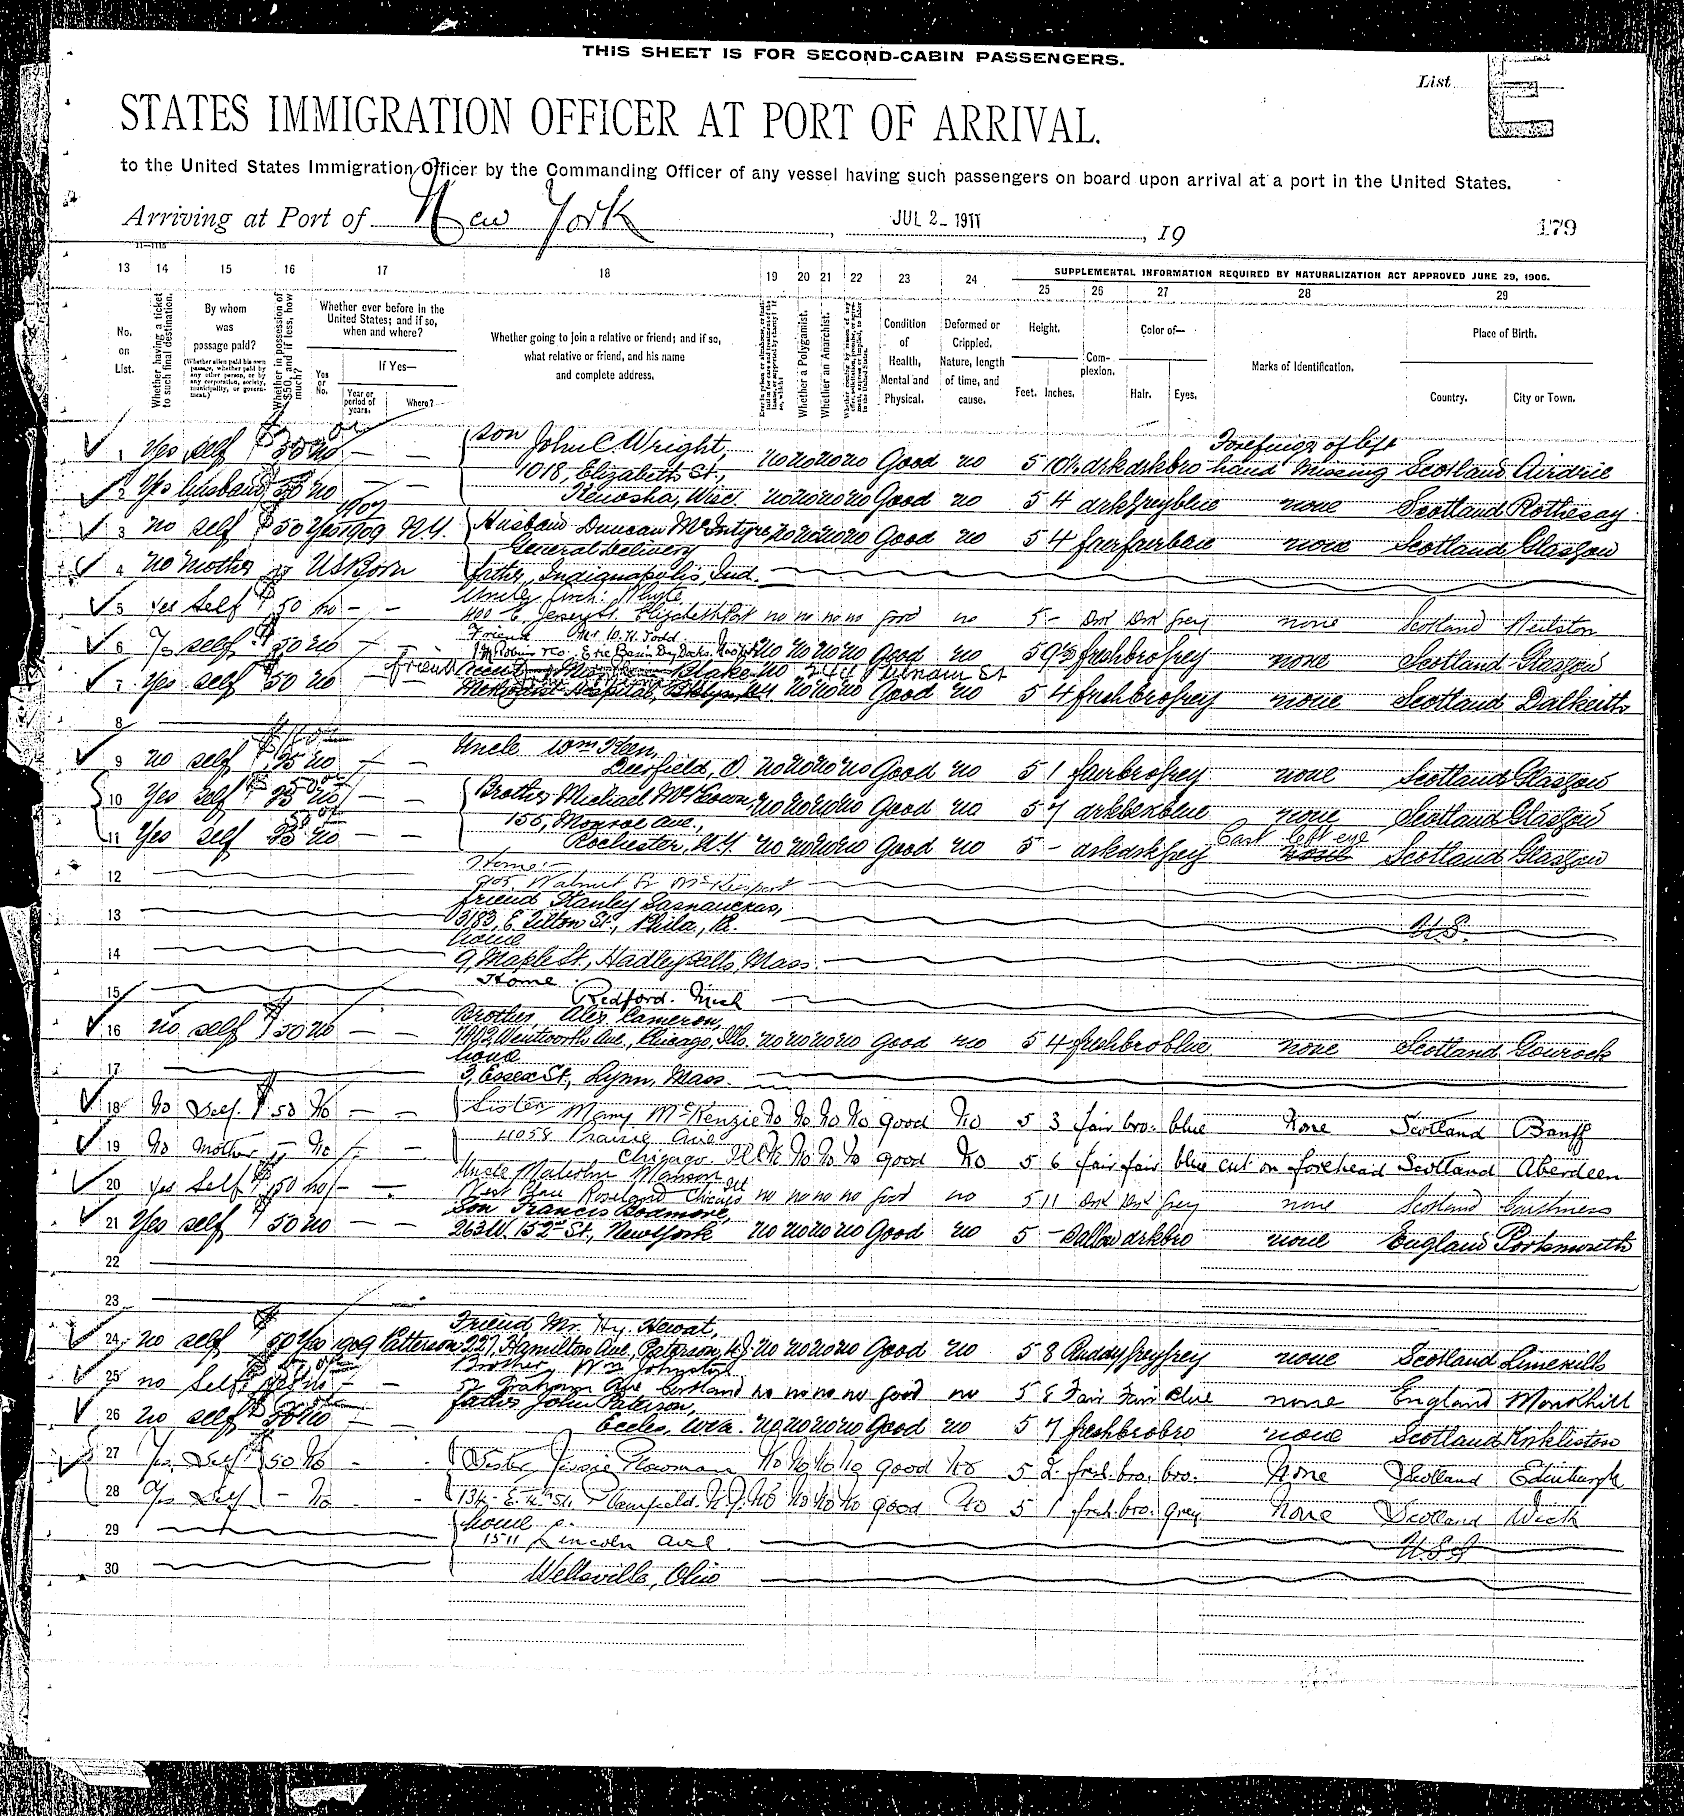 THIS SHEET IS FOR SECOND-CABIN PASSENGERS.
List E
STATES IMMIGRATION OFFICER AT PORT OF ARRIVAL.
to the United States Immigration Officer by the Commanding Officer of any vessel having such passengers on board upon arrival at a port in the United States.
Arriving at Port of New York, JUL 2- 1911, 19
179
13 14 15 16 17 18 19 20 21 22 23 24
SUPPLEMENTAL INFORMATION REQUIRED BY NATURALIZATION ACT APPROVED JUNE 29, 1906.
25 26 27 28 29
No. on List.
Whether having a ticket to such final destination.
By whom was passage paid?
Whether in possession of $50, and if less, how much?
Whether ever before in the United States; and if so, when and where?
Yes or No.
If Yes—
Year or period of years.
Where?
Whether going to join a relative or friend; and if so, what relative or friend, and his name and complete address.
Whether a Polygamist.
Whether an Anarchist.
Condition of Health, Mental and Physical.
Deformed or Crippled. Nature, length of time, and cause.
Height.
Feet. Inches.
Complexion.
Color of—
Hair. Eyes.
Marks of Identification.
Place of Birth.
Country. City or Town.
son Forefinger of left
1 Yes self $50 no — — John C. Wright, no no no no Good no 5 10½ drk drk bro hand missing Scotland Airdrie
1018, Elizabeth St.,
2 Yes husband 50 no — — Kenosha, Wisc. no no no no Good no 5 4 drk grey blue none Scotland Rothesay
3 no self $50 Yes 1909 N.Y. Husband Duncan McIntyre no no no no Good no 5 4 fair fair blue none Scotland Glasgow
General Delivery
4 no mother US Born father, Indianapolis, Ind.
5 yes Self $50 no — — 400 E Jersey St. Elizabeth Port no no no no good no 5 - Drk Drk Grey none Scotland Neilston
Friend Mr W. H. Todd
6 Yes self $50 no — Erie Basin Dry Docks no no no no Good no fresh bro grey none Scotland Glasgow
friend Blake 244 Putnam St
7 Yes self $50 no — Hospital, Bklyn, N.Y. no no no Good no 5 4 fresh bro grey none Scotland Dalkeith
8
Uncle Wm Keen,
9 no self $25 no — — Deerfield, O no no no no Good no 5 1 fair bro grey none Scotland Glasgow
10 Yes self $25 no — — Brother Michael McKeown, no no no no Good no 5 7 drk blue none Scotland Glasgow
155, Monroe Ave., Cast left eye
11 Yes self 25 no — — Rochester, N.Y. no no no no Good no 5 - drk drk grey none Scotland Glasgow
Home:-
12 Walnut St McKeesport
friend Stanley
13 3183, E Tilton St., Phila., Pa. U.S.
home
14 9, Maple St., Hadley Falls, Mass.
Home
15 Redford. Mich
Brother Alex Cameron,
16 no self $50 no — — Wentworth Ave., Chicago, Ills. no no no no Good no 5 4 fresh bro blue none Scotland Gourock
home
17 3, Essex St., Lynn, Mass.
18 No Self. $50 No — — Sister Mary McKenzie No No No No good No 5 3 fair bro. blue None Scotland Banff
4058 Prairie Ave
19 No Mother No — Chicago. Ill No No No good No 5 6 fair fair blue cut on forehead Scotland Aberdeen
Uncle Malcolm Manson
20 yes Self $50 no — — Place Roseland Chicago Ill no no no no good no 5 11 Drk Drk Grey none Scotland Caithness
Son Francis
21 Yes self $50 no — — 263 W. 152nd St., New York no no no no Good no 5 - Sallow drk bro none England Portsmouth
22
23
Friend Mr. Hy. Hewat,
24 no self $50 Yes 1909 Patterson 227, Hamilton Ave, Paterson, N.J. no no no no Good no 5 8 Ruddy grey grey none Scotland Limekilns
Brother Wm Johnston
25 no Self no — Graham Ave, no no no no good no 5 8 Fair Fair blue none England Monkhill
father John Paterson,
26 no self $50 no — Eccles, W.Va. no no no no Good no 5 7 fresh bro bro none Scotland Kirkliston
27 Yes Self 50 No - - Sister Jessie Plowman No No No No good No 5 2 fresh. bro. bro. None Scotland Edinburgh
28 Yes Self - No - - 134 E. 4th St. Plainfield. N.J. No No No No good No 5 1 fresh. bro. grey None Scotland Wick
home
29 1511 Lincoln Ave. USA
30 Wellsville, Ohio